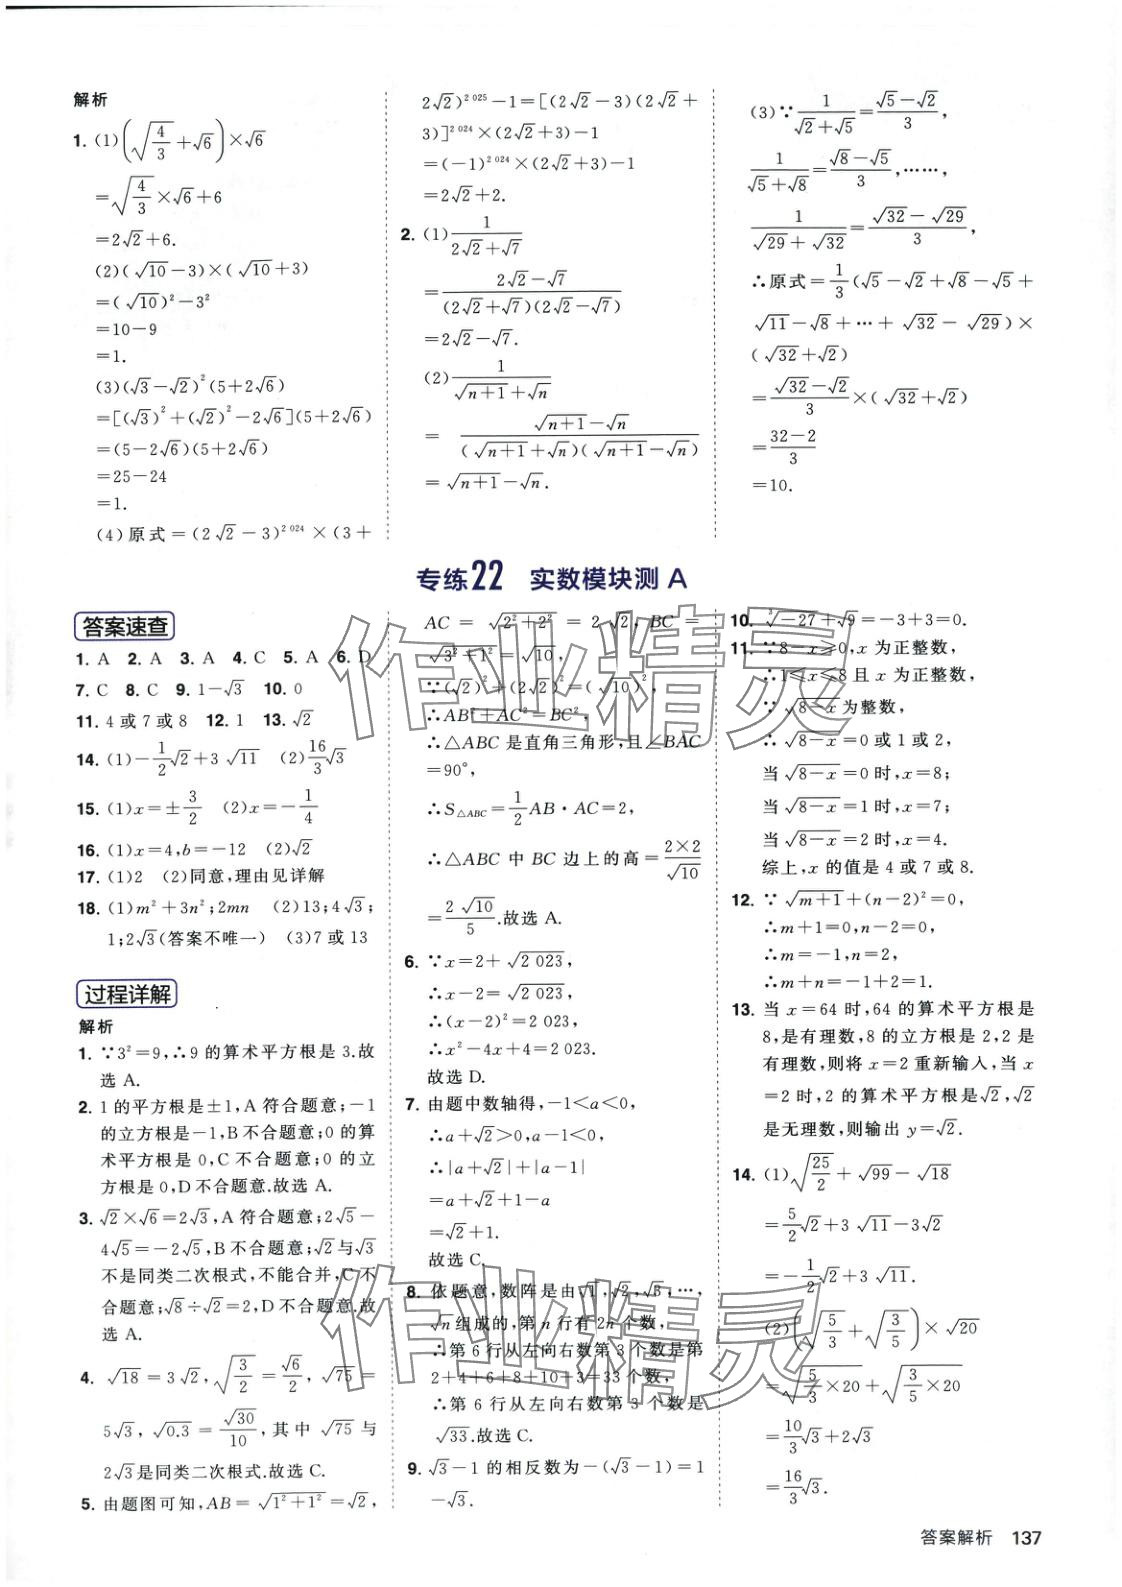 解析
1. (1)(√(4/3)+√6)×√6
=√(4/3)×√6+6
=2√2+6.
(2)(√10-3)×(√10+3)
=(√10)²-3²
=10-9
=1.
(3)(√3-√2)²(5+2√6)
=[(√3)²+(√2)²-2√6](5+2√6)
=(5-2√6)(5+2√6)
=25-24
=1.
(4)原式=(2√2-3)^2 024×(3+
2√2)^2 025-1=[(2√2-3)(2√2+
3)]^2 024×(2√2+3)-1
=(-1)^2 024×(2√2+3)-1
=2√2+2.
2. (1)1/(2√2+√7)
=(2√2-√7)/((2√2+√7)(2√2-√7))
=2√2-√7.
(2)1/(√(n+1)+√n)
=(√(n+1)-√n)/((√(n+1)+√n)(√(n+1)-√n))
=√(n+1)-√n.
(3)∵1/(√2+√5)=(√5-√2)/3,
1/(√5+√8)=(√8-√5)/3,……,
1/(√29+√32)=(√32-√29)/3,
∴原式=1/3(√5-√2+√8-√5+
√11-√8+…+√32-√29)×
(√32+√2)
=(√32-√2)/3×(√32+√2)
=(32-2)/3
=10.
专练22 实数模块测 A
答案速查
1. A 2. A 3. A 4. C 5. A 6. D
7. C 8. C 9. 1-√3 10. 0
11. 4或7或8 12. 1 13. √2
14. (1)-1/2√2+3√11 (2)16/3√3
15. (1)x=±3/2 (2)x=-1/4
16. (1)x=4,b=-12 (2)√2
17. (1)2 (2)同意,理由见详解
18. (1)m²+3n²;2mn (2)13;4√3;
1;2√3(答案不唯一) (3)7或13
过程详解
解析
1. ∵3²=9,∴9的算术平方根是3.故
选A.
2. 1的平方根是±1,A符合题意;-1
的立方根是-1,B不合题意;0的算
术平方根是0,C不合题意;0的立
方根是0,D不合题意.故选A.
3. √2×√6=2√3,A符合题意;2√5-
4√5=-2√5,B不合题意;√2与√3
不是同类二次根式,不能合并,C不
合题意;√8÷√2=2,D不合题意.故
选A.
4. √18=3√2,√(3/2)=√6/2,√75=
5√3,√0.3=√30/10,其中√75与
2√3是同类二次根式.故选C.
5. 由题图可知,AB=√(1²+1²)=√2,
AC=√(2²+2²)=2√2,BC=
√(3²+1²)=√10,
∵(√2)²+(2√2)²=(√10)²,
∴AB²+AC²=BC²,
∴△ABC是直角三角形,且∠BAC
=90°,
∴S△ABC=1/2AB·AC=2,
∴△ABC中BC边上的高=(2×2)/√10
=2√10/5.故选A.
6. ∵x=2+√2 023,
∴x-2=√2 023,
∴(x-2)²=2 023,
∴x²-4x+4=2 023.
故选D.
7. 由题中数轴得,-1<a<0,
∴a+√2>0,a-1<0,
∴|a+√2|+|a-1|
=a+√2+1-a
=√2+1.
故选C.
8. 依题意,数阵是由√1,√2,√3,…,
√n组成的,第n行有2n个数,
∴第6行从左向右数第3个数是第
2+4+6+8+10+3=33个数,
∴第6行从左向右数第3个数是
√33.故选C.
9. √3-1的相反数为-(√3-1)=1
-√3.
10. ³√-27+√9=-3+3=0.
11. ∵8-x≥0,x为正整数,
∴1≤x≤8且x为正整数,
∵√(8-x)为整数,
∴√(8-x)=0或1或2,
当√(8-x)=0时,x=8;
当√(8-x)=1时,x=7;
当√(8-x)=2时,x=4.
综上,x的值是4或7或8.
12. ∵√(m+1)+(n-2)²=0,
∴m+1=0,n-2=0,
∴m=-1,n=2,
∴m+n=-1+2=1.
13. 当x=64时,64的算术平方根是
8,是有理数,8的立方根是2,2是
有理数,则将x=2重新输入,当x
=2时,2的算术平方根是√2,√2
是无理数,则输出y=√2.
14. (1)√(25/2)+√99-√18
=5/2√2+3√11-3√2
=-1/2√2+3√11.
(2)(√(5/3)+√(3/5))×√20
=√(5/3×20)+√(3/5×20)
=10/3√3+2√3
=16/3√3.
作业精灵
作业精灵
答案解析 137